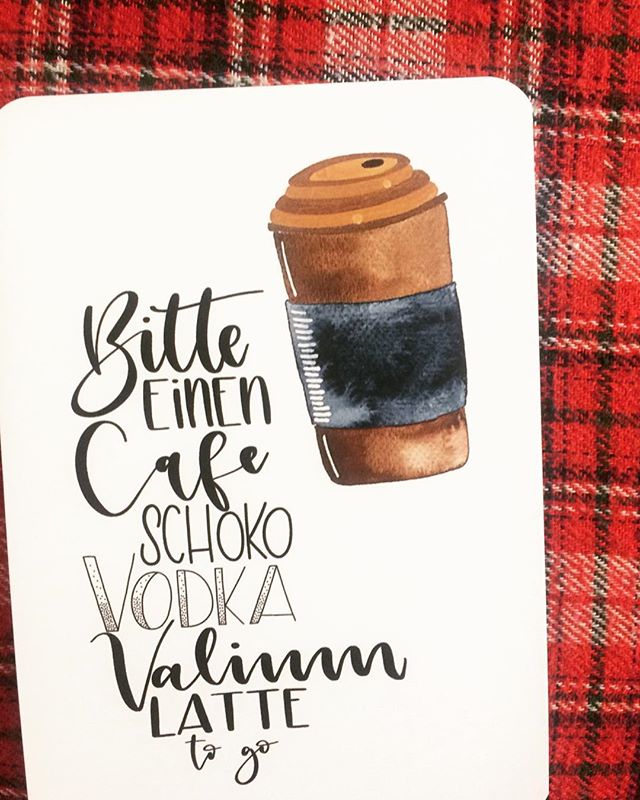 Bitte
EINEN
Cafe
SCHOKO
VODKA
Valium
LATTE
to go